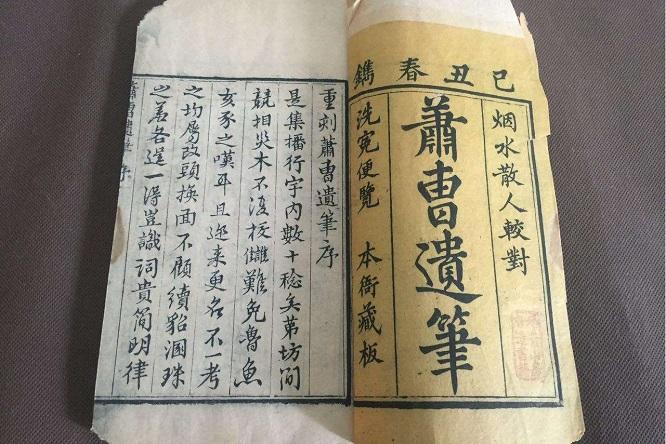 巳丑春鐫
烟水散人較對
蕭曺遺筆
洗冤便覽 本衙藏板
重刻蕭曹遺筆序
是集播行宇内數十稔矣苐坊間
競相災木不復校讎難免魯魚
亥豕之嘆耳且迩来更名不一考
之均屬改頭換面不顧續貂溷珠
之羞各逞一得豈識詞貴簡明律